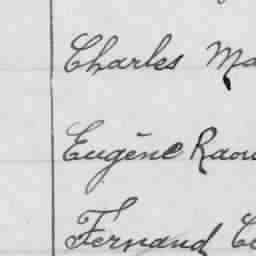 Charles Ma
Eugène Raou
Fernand